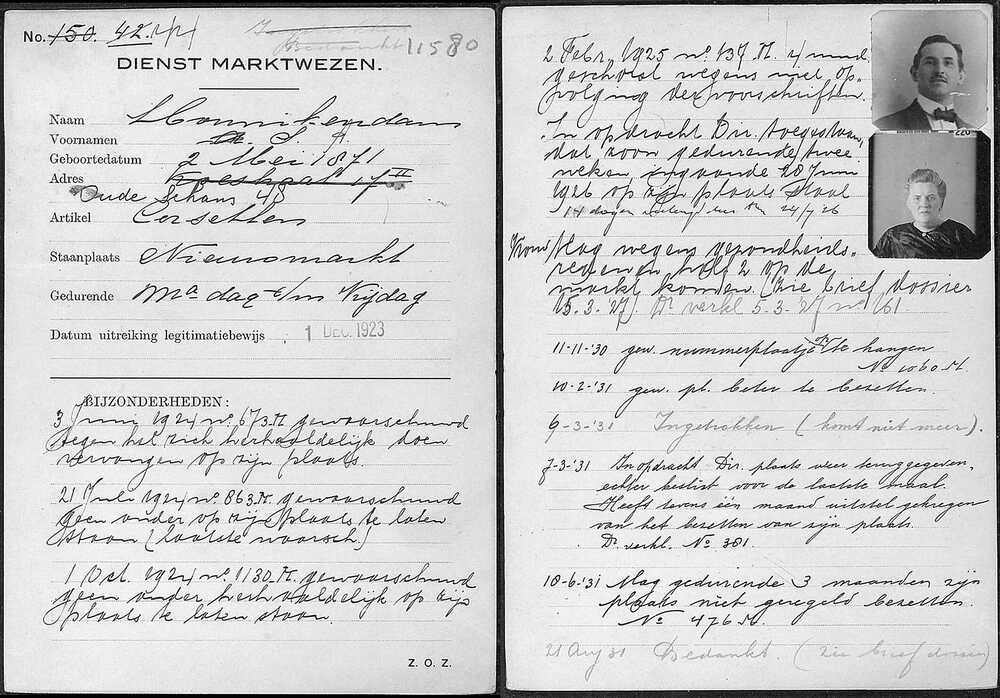 No. 150. 42.
Bedankt 11580
DIENST MARKTWEZEN.
Naam Monnikendam
Voornamen S. A.
Geboortedatum 2 Mei 1871
Adres 17 II
Oude Schans 48
Artikel Corsetten
Staanplaats Nieuwmarkt
Gedurende Maandag t/m Vrijdag
Datum uitreiking legitimatiebewijs 1 DEC. 1923
BIJZONDERHEDEN:
3 Juni 1924 no. 673 M. gewaarschuwd
tegen het zich herhaaldelijk doen
vervangen op zijn plaats.
21 Juli 1924 no. 863 M. gewaarschuwd
geen ander op zijn plaats te laten
staan (laatste waarsch.)
1 Oct. 1924 no. 1130 M. gewaarschuwd
geen ander herhaaldelijk op zijn
plaats te laten staan.
Z. O. Z.
2 Febr. 1925 no. 137 M. 4 mnd.
geschorst wegens niet op-
volging der voorschriften.
In opdracht Dir. toegestaan,
dat zoon gedurende twee
weken, ingaande 28 Juni
1926 op zijn plaats staat
14 dagen verlengd 24/7 26
Vrouw Mag wegens gezondheids-
redenen tot 2 op de
markt komen. (Zie brief dossier
15.3.'27). Dr. verkl. 5-3-'27 no 161
11-11-'30 gew. nummerplaatje op te hangen
No 1060 M.
10-2-'31 gew. pl. beter te bezetten
9-3-'31 Ingetrokken (komt niet meer).
7-3-'31 In opdracht Dir. plaats weer teruggegeven,
echter beslist voor de laatste maal.
Heeft tevens één maand uitstel gekregen
van het bezetten van zijn plaats.
Dr. verkl. No. 381.
18-6-'31 Mag gedurende 3 maanden zijn
plaats niet geregeld bezetten.
No 476 M.
21 Aug 31 Bedankt. (zie brief dossier)